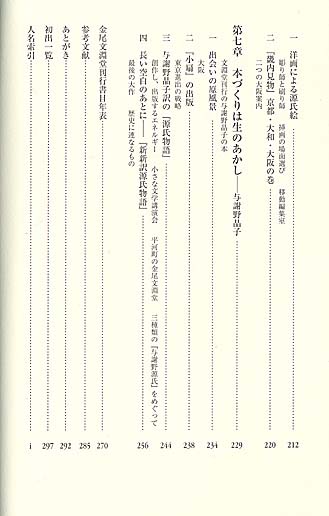 一 洋画による源氏絵 212
彫り師と刷り師 挿画の場面選び 移動編集室
二 『畿内見物』京都・大和・大阪の巻 220
二つの大阪案内
第七章 本づくりは生のあかし——与謝野晶子 229
文淵堂刊行の与謝野晶子の本
一 出会いの原風景 234
大阪
二 『小扇』の出版 238
東京進出の戦略
三 与謝野晶子訳の『源氏物語』 244
創作し、出版するエネルギー 小さな文学講演会 平河町の金尾文淵堂 三種類の『与謝野源氏』をめぐって
四 長い空白のあとに——『新新訳源氏物語』 256
最後の大作 歴史に連なるもの
金尾文淵堂刊行書目年表 270
参考文献 285
あとがき 292
初出一覧 297
人名索引 i